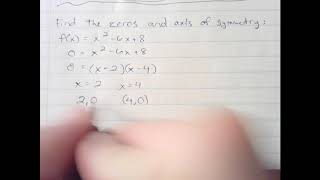 Find the zeros and axis of symmetry:
f(x) = x² - 6x + 8
0 = x² - 6x + 8
0 = (x-2)(x-4)
x = 2 x = 4
2,0 (4,0)